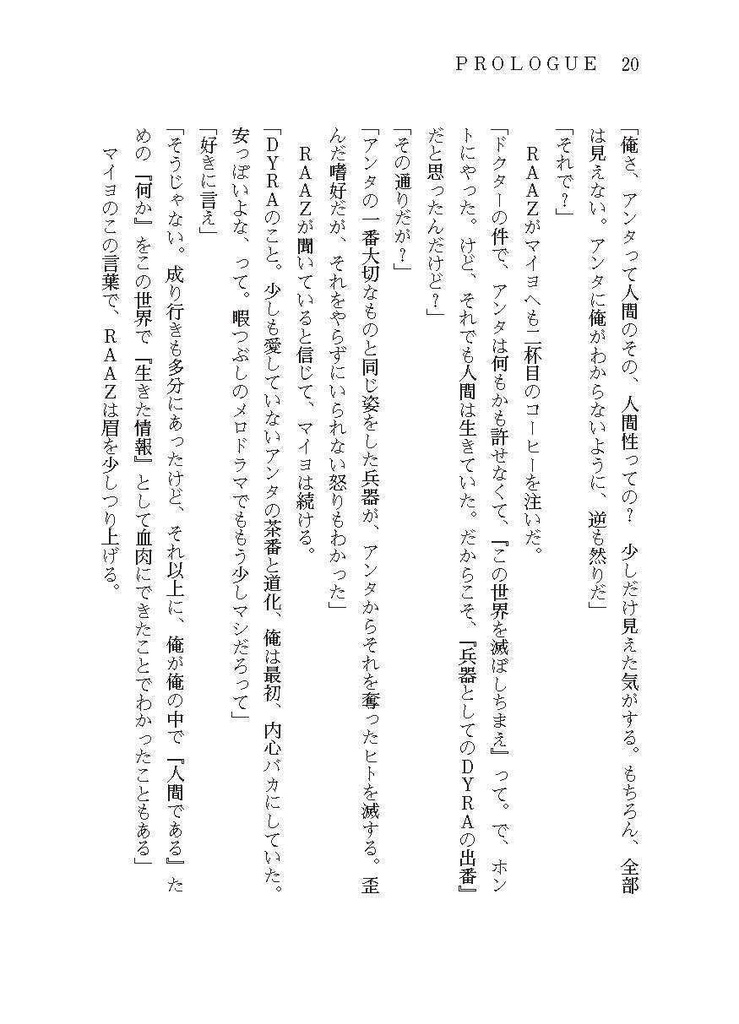 PROLOGUE 20
「俺さ、アンタって人間のその、人間性っての？　少しだけ見えた気がする。もちろん、全部
は見えない。アンタに俺がわからないように、逆も然りだ」
「それで？」
　RAAZがマイヨへも二杯目のコーヒーを注いだ。
「ドクターの件で、アンタは何もかも許せなくて、『この世界を滅ぼしちまえ』って。で、ホン
トにやった。けど、それでも人間は生きていた。だからこそ、『兵器としてのDYRAの出番』
だと思ったんだけど？」
「その通りだが？」
「アンタの一番大切なものと同じ姿をした兵器が、アンタからそれを奪ったヒトを滅する。歪
んだ嗜好だが、それをやらずにいられない怒りもわかった」
　RAAZが聞いていると信じて、マイヨは続ける。
「DYRAのこと。少しも愛していないアンタの茶番と道化、俺は最初、内心バカにしていた。
安っぽいよな、って。暇つぶしのメロドラマでももう少しマシだろって」
「好きに言え」
「そうじゃない。成り行きも多分にあったけど、それ以上に、俺が俺の中で『人間である』た
めの『何か』をこの世界で『生きた情報』として血肉にできたことでわかったこともある」
　マイヨのこの言葉で、RAAZは眉を少しつり上げる。